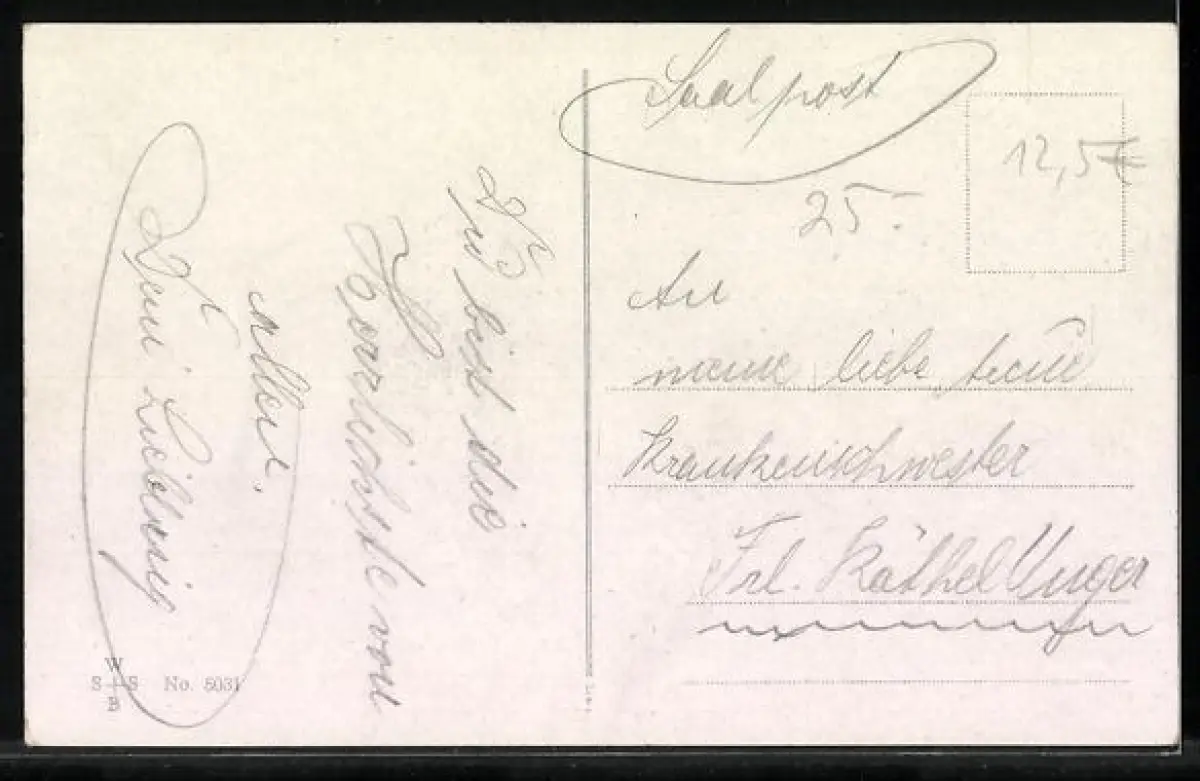 Saalpost
12,5€
25.-
An
meine liebe treue
Krankenschwester
Frl. Käthel Unger
Du bist die
Herrlichste von
allen.
Dein Liebling
W
S + S
B
No. 5031